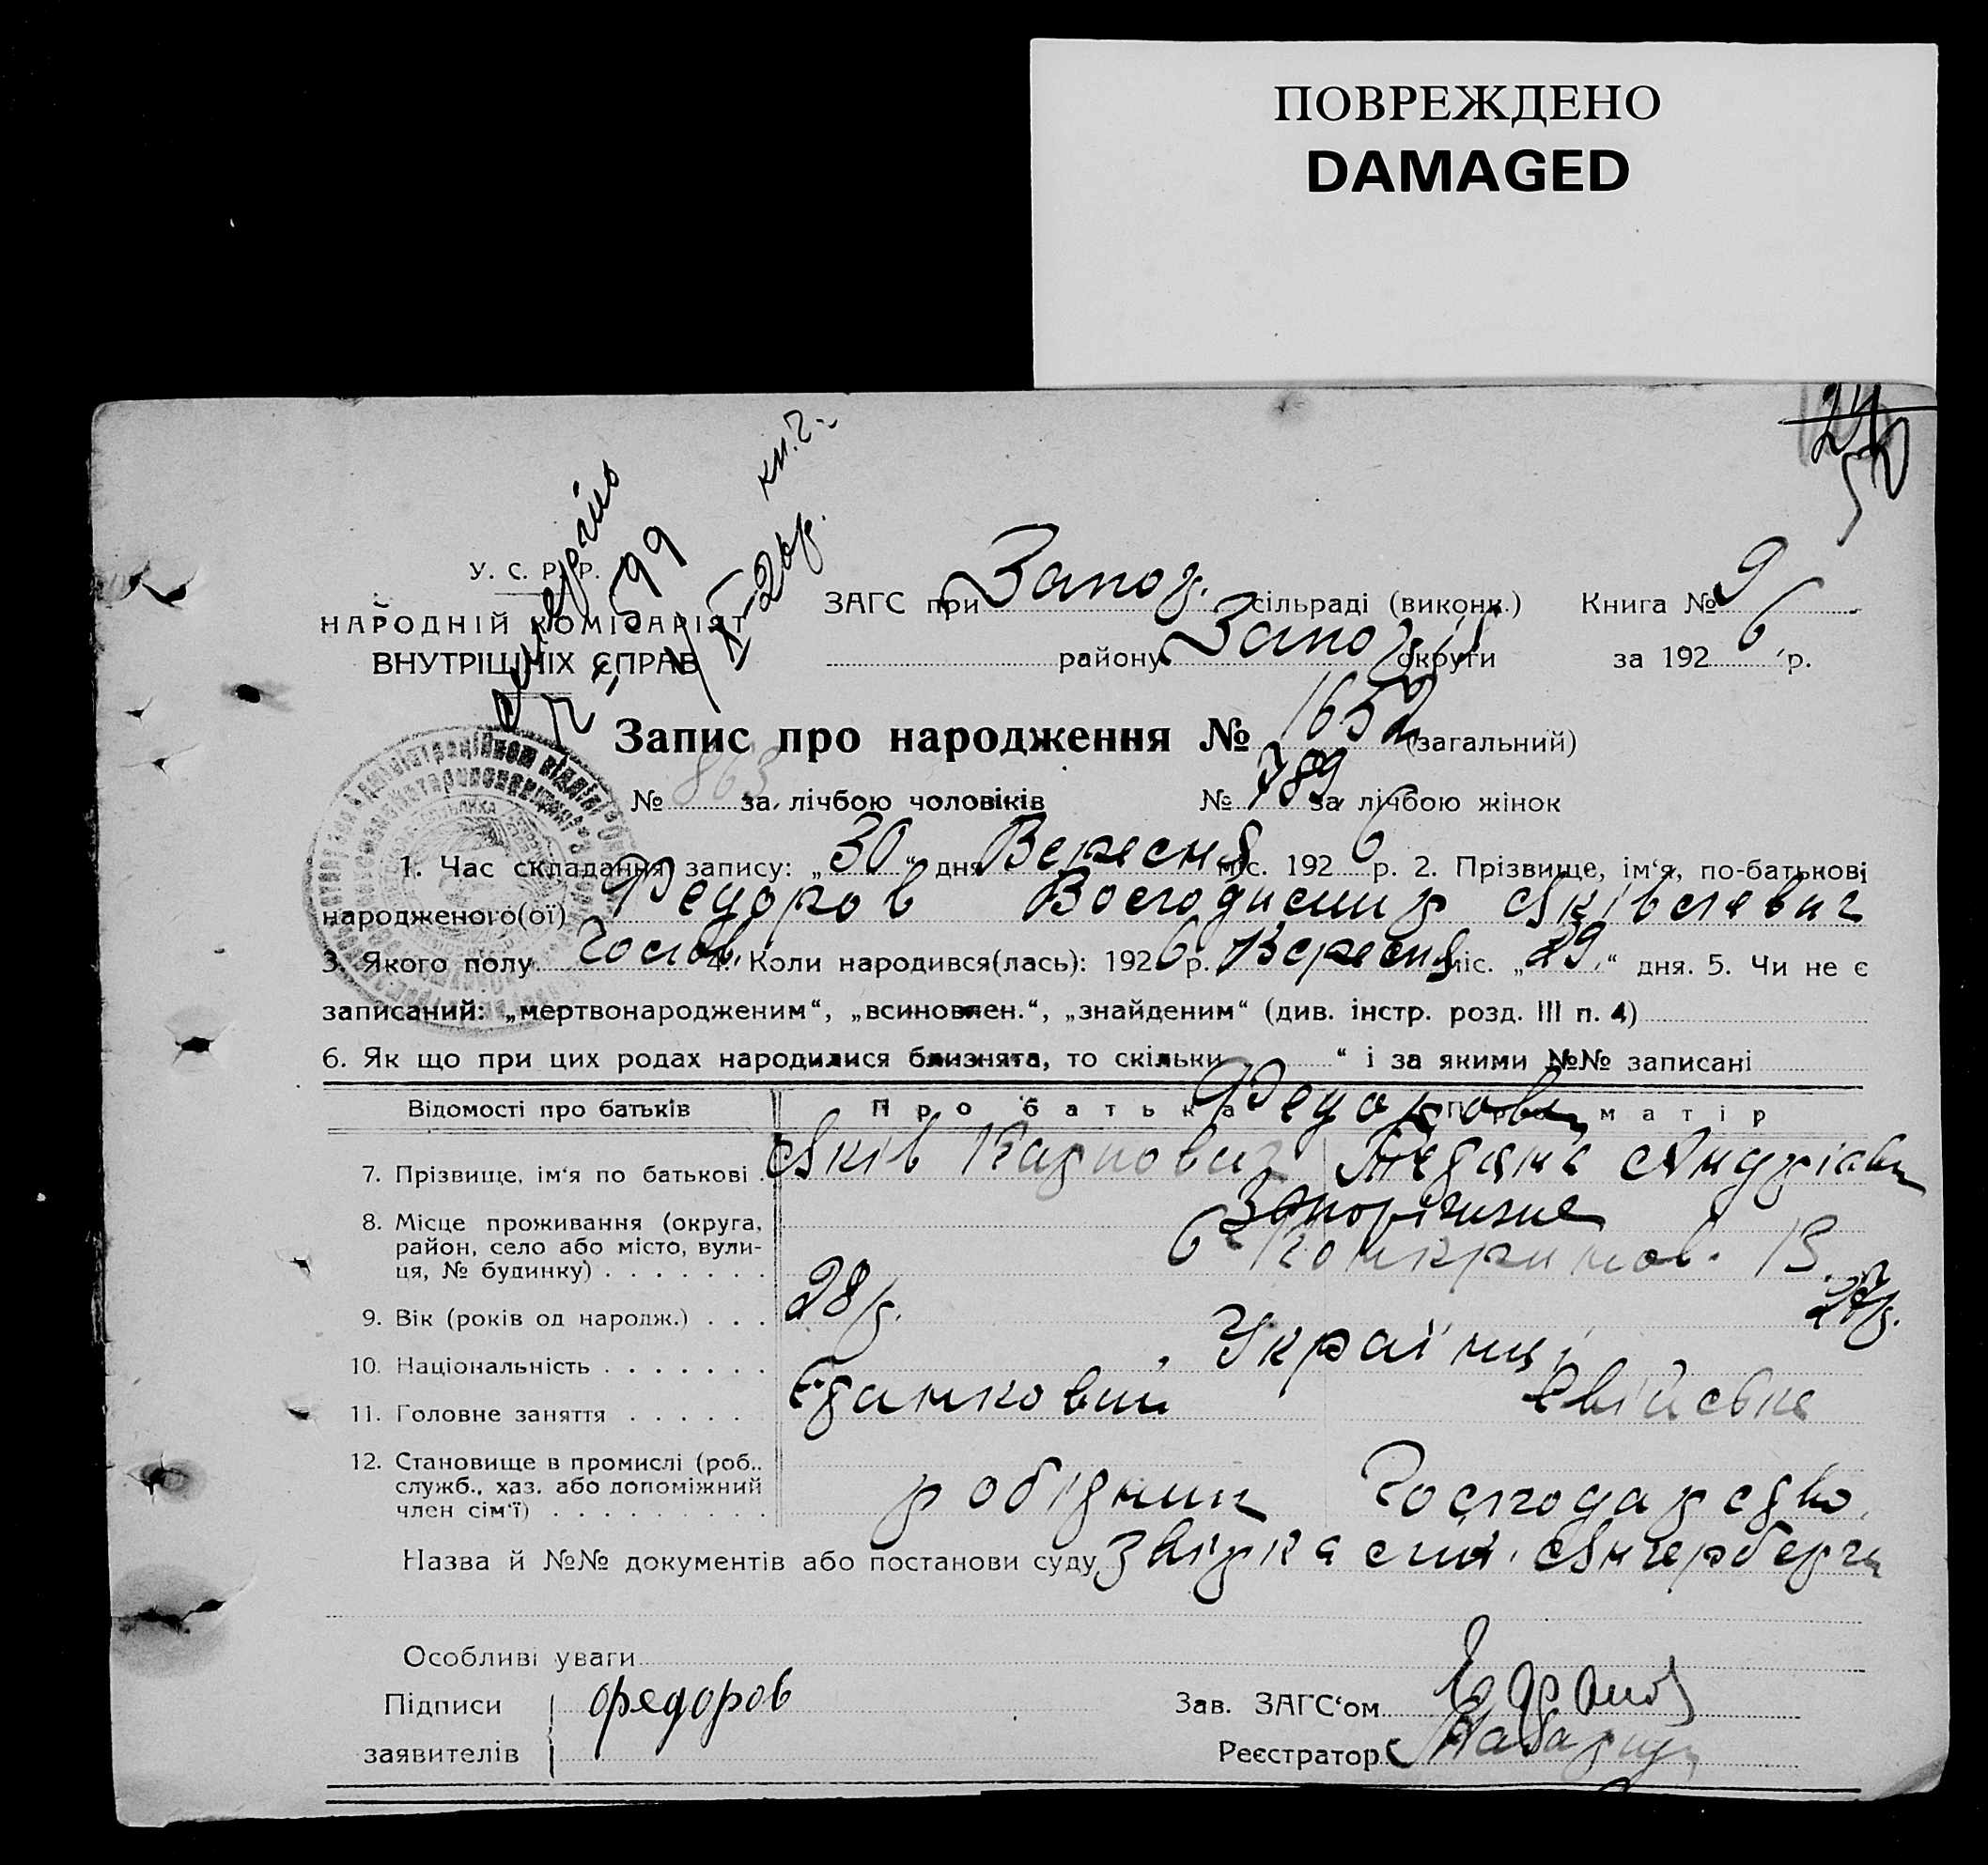 ПОВРЕЖДЕНО
DAMAGED
У. С. Р. Р.
НАРОДНІЙ КОМІСАРІЯТ
ВНУТРІШНІХ СПРАВ
599
26р.
кн. 2
50
ЗАГС при Запор. сільраді (викона.) Книга № 9
району Запор. округи за 1926 р.
Запис про народження № 1652 (загальний)
№ 863 за лічбою чоловіків № 789 за лічбою жінок
1. Час складання запису: „30“ дня Вересня міс. 1926 р. 2. Прізвище, ім‘я, по-батькові
народженого(ої) Федоров Володимир Яківлевич
3. Якого полу Чолов. 4. Коли народився(лась): 1926 р. Вересня міс. „29“ дня. 5. Чи не є
записаний: „мертвонародженим“, „всиновлен.“, „знайденим“ (див. інстр. розд. III п. 4)
6. Як що при цих родах народилися близнята, то скільки “ і за якими №№ записані
Відомості про батьків Про батька Про матір
Федорови
7. Прізвище, ім‘я по батькові Яків Карпович Андріівн
8. Місце проживання (округа, район, село або місто, вулиця, № будинку) Запоріжжє
9. Вік (років од народж.) 28 р. 27 р.
10. Національність Українці
11. Головне заняття свійське
12. Становище в промислі (роб., служб., хаз. або допоміжний член сім‘ї) робітник Господарство
Назва й №№ документів або постанови суду
Особливі уваги
Підписи заявителів Федоров
Зав. ЗАГС‘ом
Реєстратор